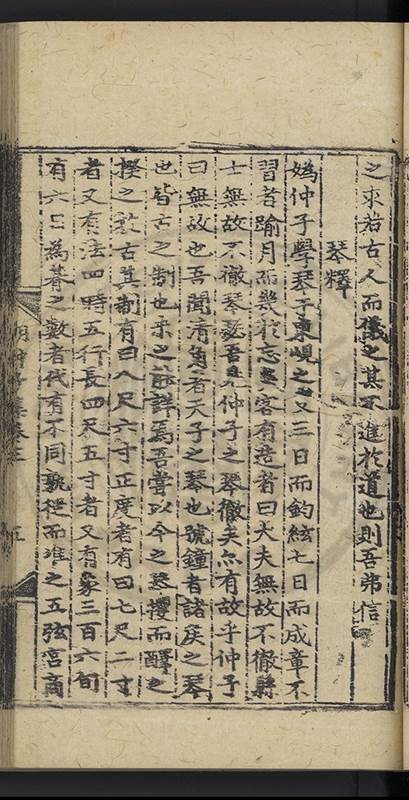 之來若古人而儀之其不進於道也則吾弗信
琴釋
嬀仲子學琴于東峴之 三日而鈞絃七日而成章不
習者踰月而幾於忘 客有造者曰大夫無故不徹縣
士無故不徹琴瑟吾見仲子之琴徹矣亦有故乎仲子
曰無故也吾聞清角者天子之琴也號鐘者諸侯之琴
也皆古之制也 之 詳焉吾嘗以今之 而釋之
揆之 古其制有曰八尺六寸正度者有曰七尺二寸
者又有法四時五行長四尺五寸者又有象三百六旬
有六日為朞之數者代有不同孰從而准之五弦宮商
集卷三
五